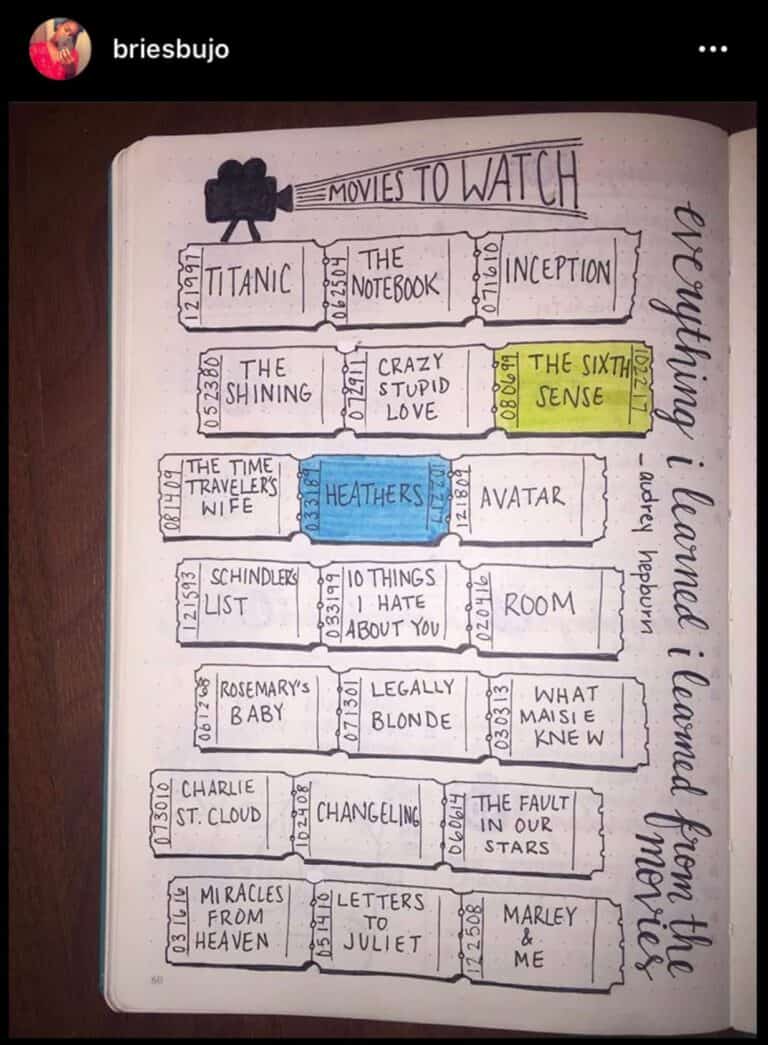 briesbujo
MOVIES TO WATCH
121997
TITANIC
062504
THE
NOTEBOOK
071610
INCEPTION
052380
THE
SHINING
072911
CRAZY
STUPID
LOVE
080699
THE SIXTH
SENSE
102217
081409
THE TIME
TRAVELER'S
WIFE
033189
HEATHERS
121809
AVATAR
121593
SCHINDLER'S
LIST
033199
10 THINGS
I HATE
ABOUT YOU
020416
ROOM
061268
ROSEMARY'S
BABY
071301
LEGALLY
BLONDE
030313
WHAT
MAISIE
KNEW
073010
CHARLIE
ST. CLOUD
102408
CHANGELING
060614
THE FAULT
IN OUR
STARS
031616
MIRACLES
FROM
HEAVEN
051410
LETTERS
TO
JULIET
122508
MARLEY
&
ME
everything i learned i learned from the
movies
- audrey hepburn
60